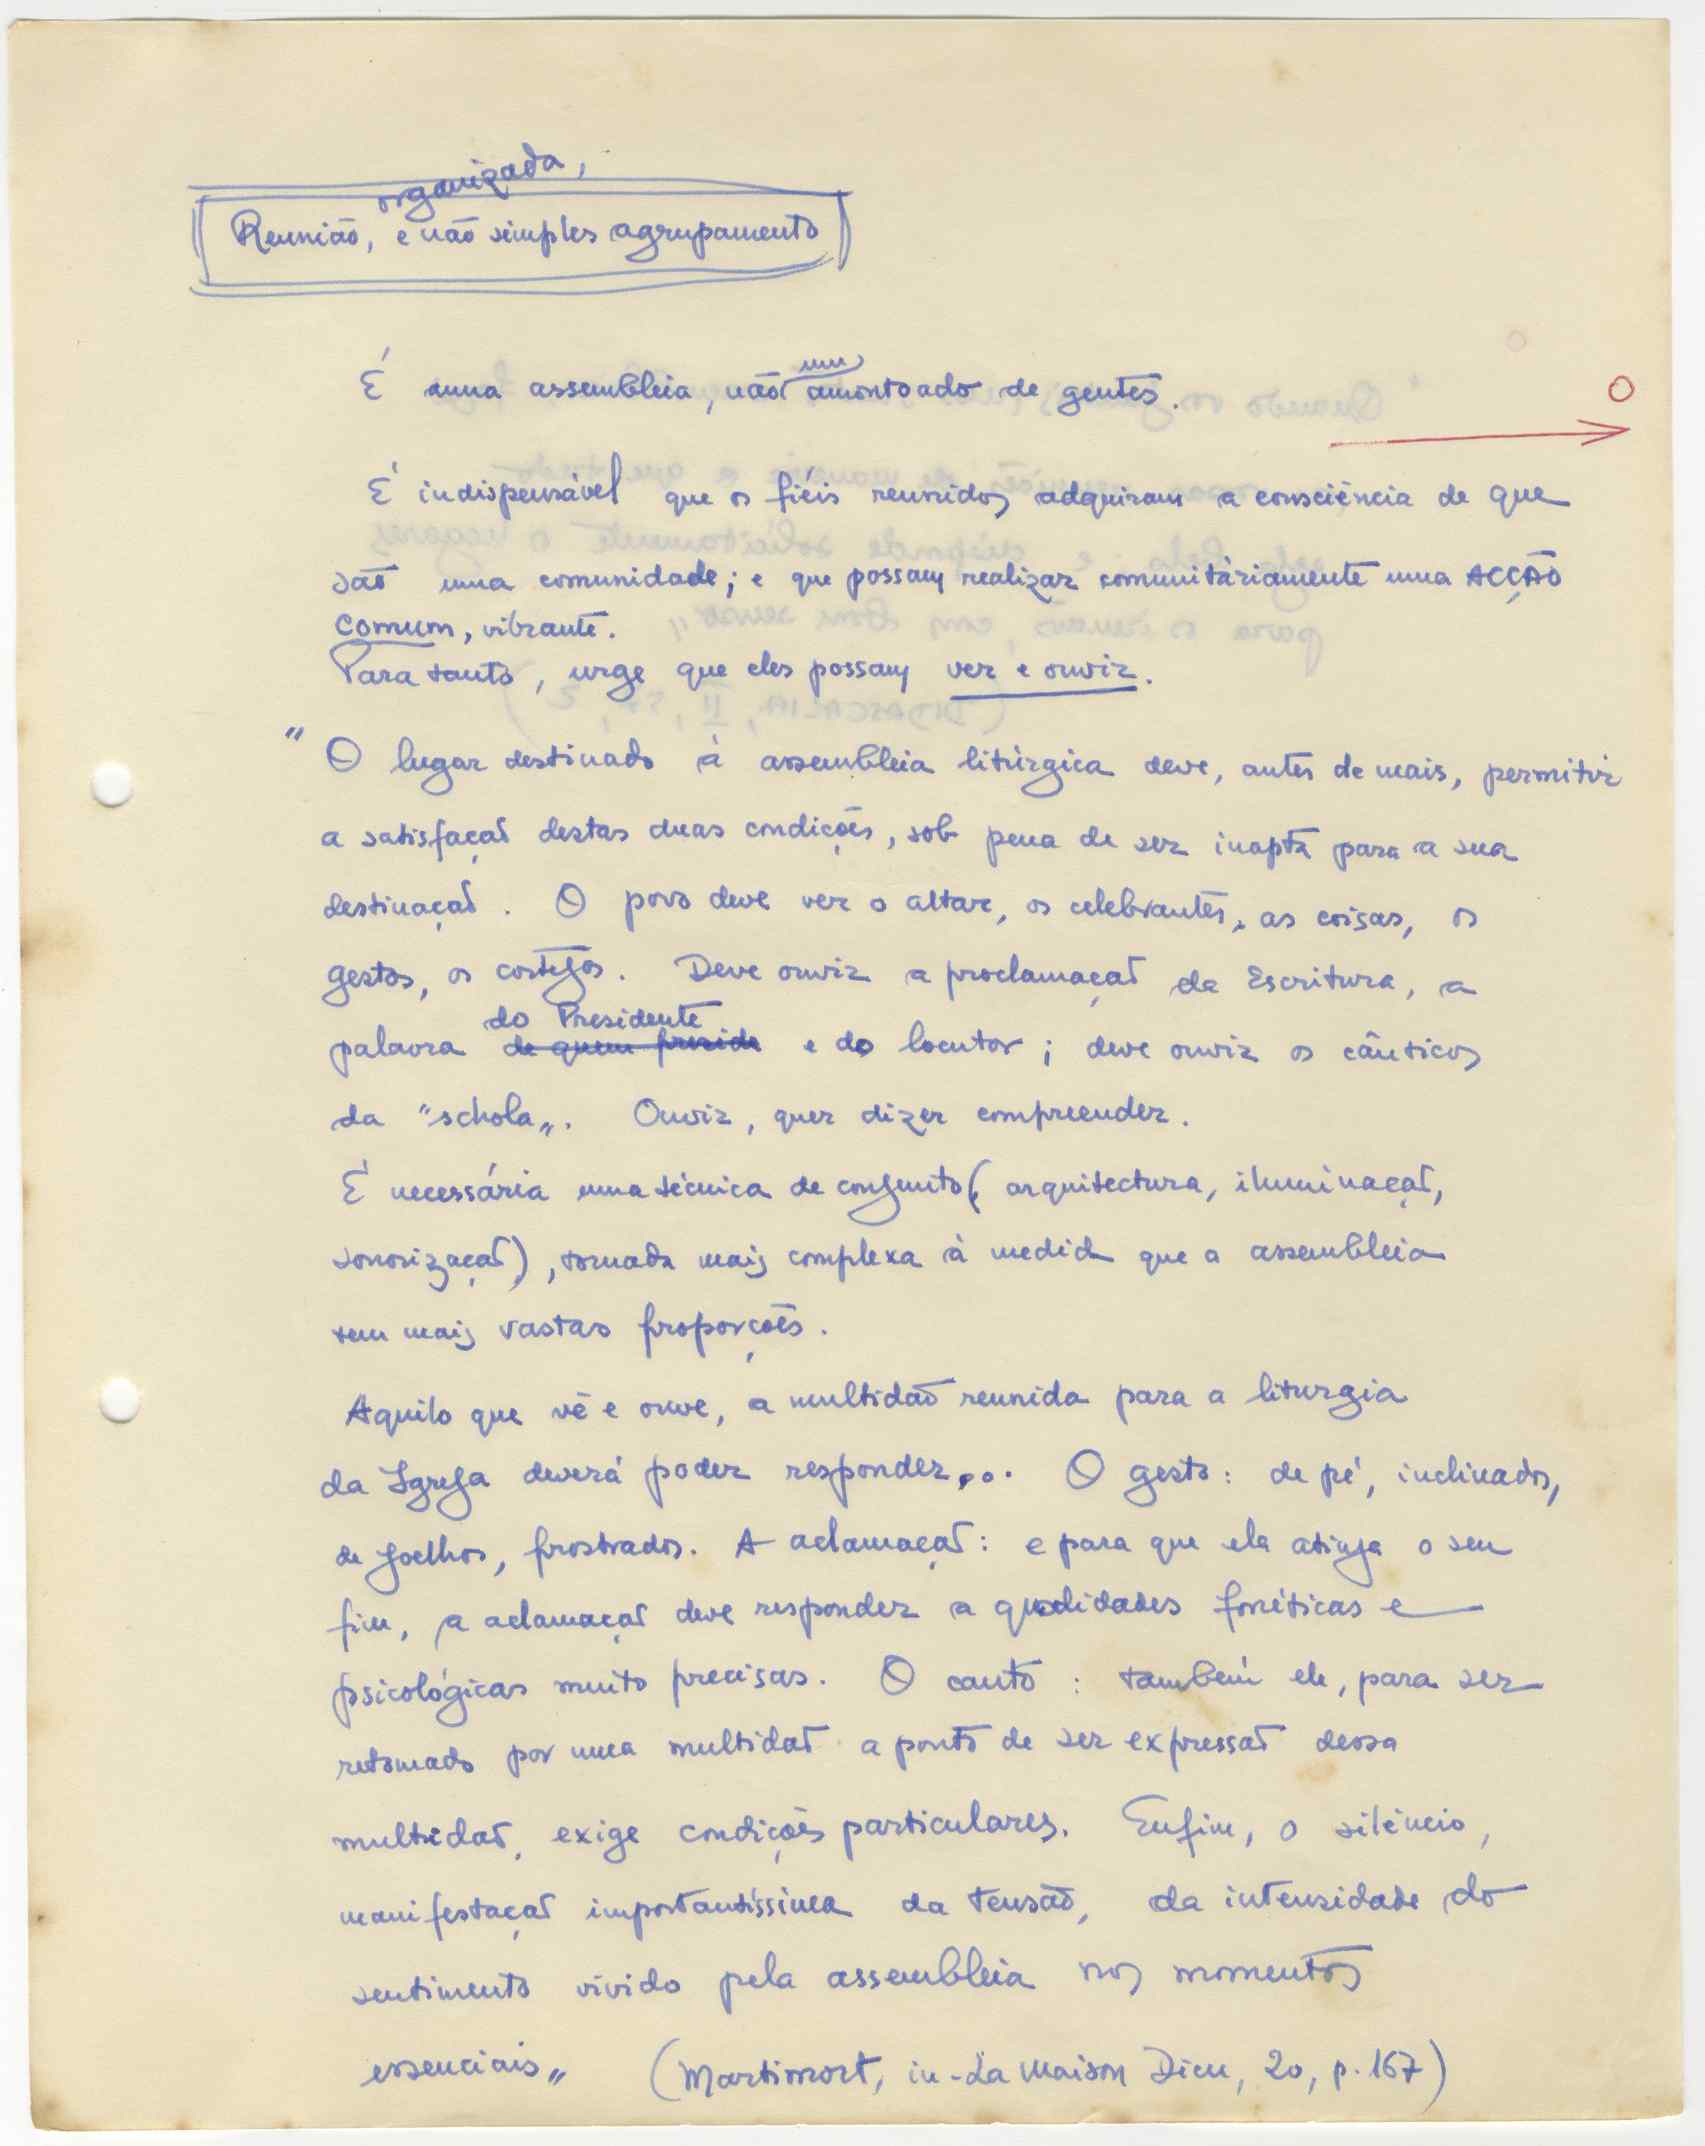 organizada,
Reunião, e não simples agrupamento
um
É uma assembleia, não amontoado de gentes.
O
É indispensável que os fiéis reunidos adquiram a consciência de que
são uma comunidade; e que possam realizar comunitàriamente uma ACÇÃO
comum, vibrante.
Para tanto, urge que eles possam ver e ouvir.
" O lugar destinado à assembleia litúrgica deve, antes de mais, permitir
a satisfação destas duas condições, sob pena de ser inapta para a sua
destinação. O povo deve ver o altar, os celebrantes, as coisas, os
gestos, os cortejos. Deve ouvir a proclamação da Escritura, a
do Presidente
palavra de quem preside e do locutor; deve ouvir os cânticos
da "schola„. Ouvir, quer dizer compreender.
É necessária uma técnica de conjunto (arquitectura, iluminação,
sonorização), tornada mais complexa à medida que a assembleia
tem mais vastas proporções.
Aquilo que vê e ouve, a multidão reunida para a liturgia
da Igreja deverá poder responder... O gesto: de pé, inclinados,
de joelhos, prostrados. A aclamação: e para que ela atinja o seu
fim, a aclamação deve responder a qualidades fonéticas e
psicológicas muito precisas. O canto: também ele, para ser
retomado por uma multidão a ponto de ser expressão dessa
multidão, exige condições particulares. Enfim, o silêncio,
manifestação importantíssima da tensão, da intensidade do
sentimento vivido pela assembleia nos momentos
essenciais„ (Martimort, in-La Maison Dieu, 20, p. 167)